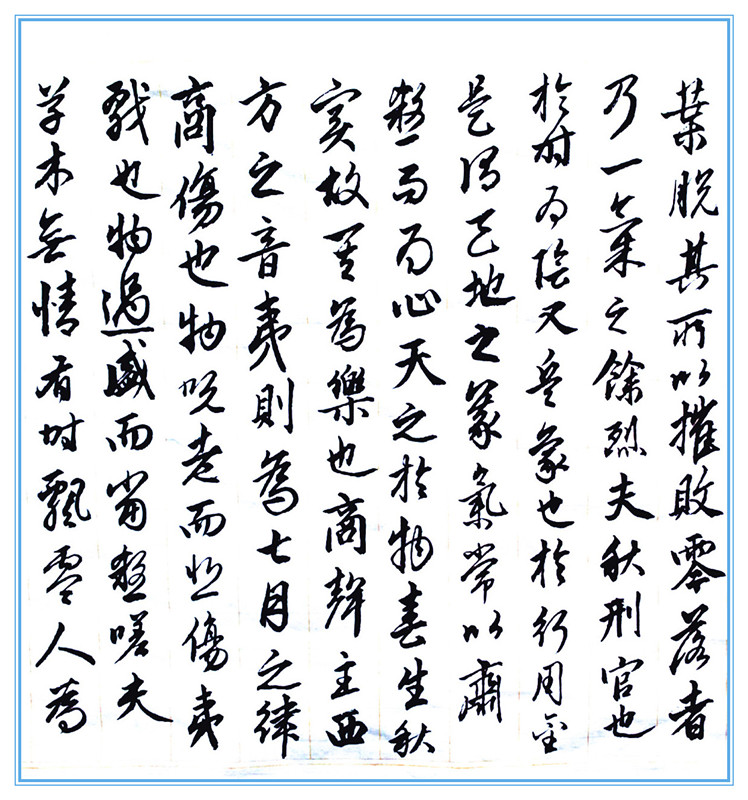 葉脫其所以摧敗零落者
乃一氣之餘烈夫秋刑官也
於時為陰又兵象也於行用金
是謂天地之義氣常以肅
殺而為心天之於物春生秋
實故其為樂也商聲主西
方之音夷則為七月之律
商傷也物既老而悲傷夷
戮也物過盛而當殺嗟夫
草木無情有時飄零人為